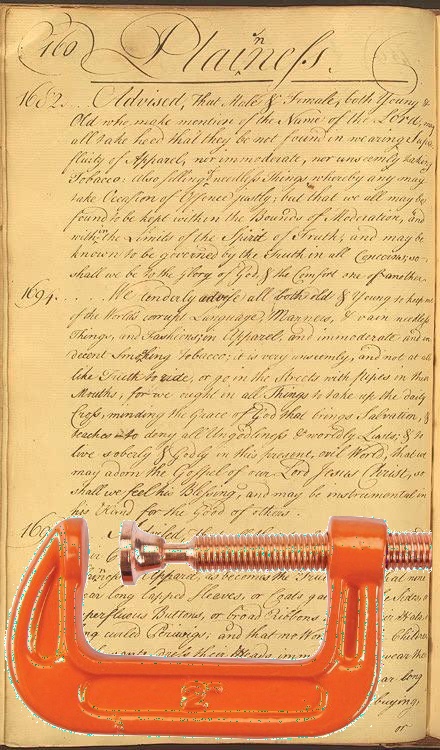 160
Plainness.
1682... Advised, That Male & Female, both Young &
Old who make mention of the Name of the Lord, may
all take heed that they be not found in wearing Supe
fluity of Apparel, nor immoderate, nor unseemly taking
Tobacco: also selling needless Things whereby any may
take Occasion of Offence justly; but that we all may be
found to be kept within the Bounds of Moderation, and
within the Limits of the Spirit of Truth; and may be
known to be governed by the Truth in all Concerns, so
shall we be to the Glory of God, & the Comfort one of another.
1694..... We tenderly advise all both old & Young to keep
of the World's corrupt Language, Manners, & vain needless
Things, and Fashions, in Apparel, and immoderate and in
decent Smoking Tobacco; it is very unseemly, and not at all
like Truth to ride, or go in the Streets with pipes in their
Mouths, for we ought in all Things to take up the daily
Cross, minding the Grace of God that brings Salvation, &
teaches to deny all Ungodliness & worldly Lusts, & to
live soberly & Godly in this present, evil World, that we
may adorn the Gospel of our Lord Jesus Christ, so
shall we feel his Blessing, and may be instrumental in
his Hand for the Good of others.
Apparel, as becomes the
long lapped Sleeves, or Coats
Buttons, or broad Ribbons
curled Perriwigs, and that no Wom
dress their Heads
wear the
long
buying,
or
2"